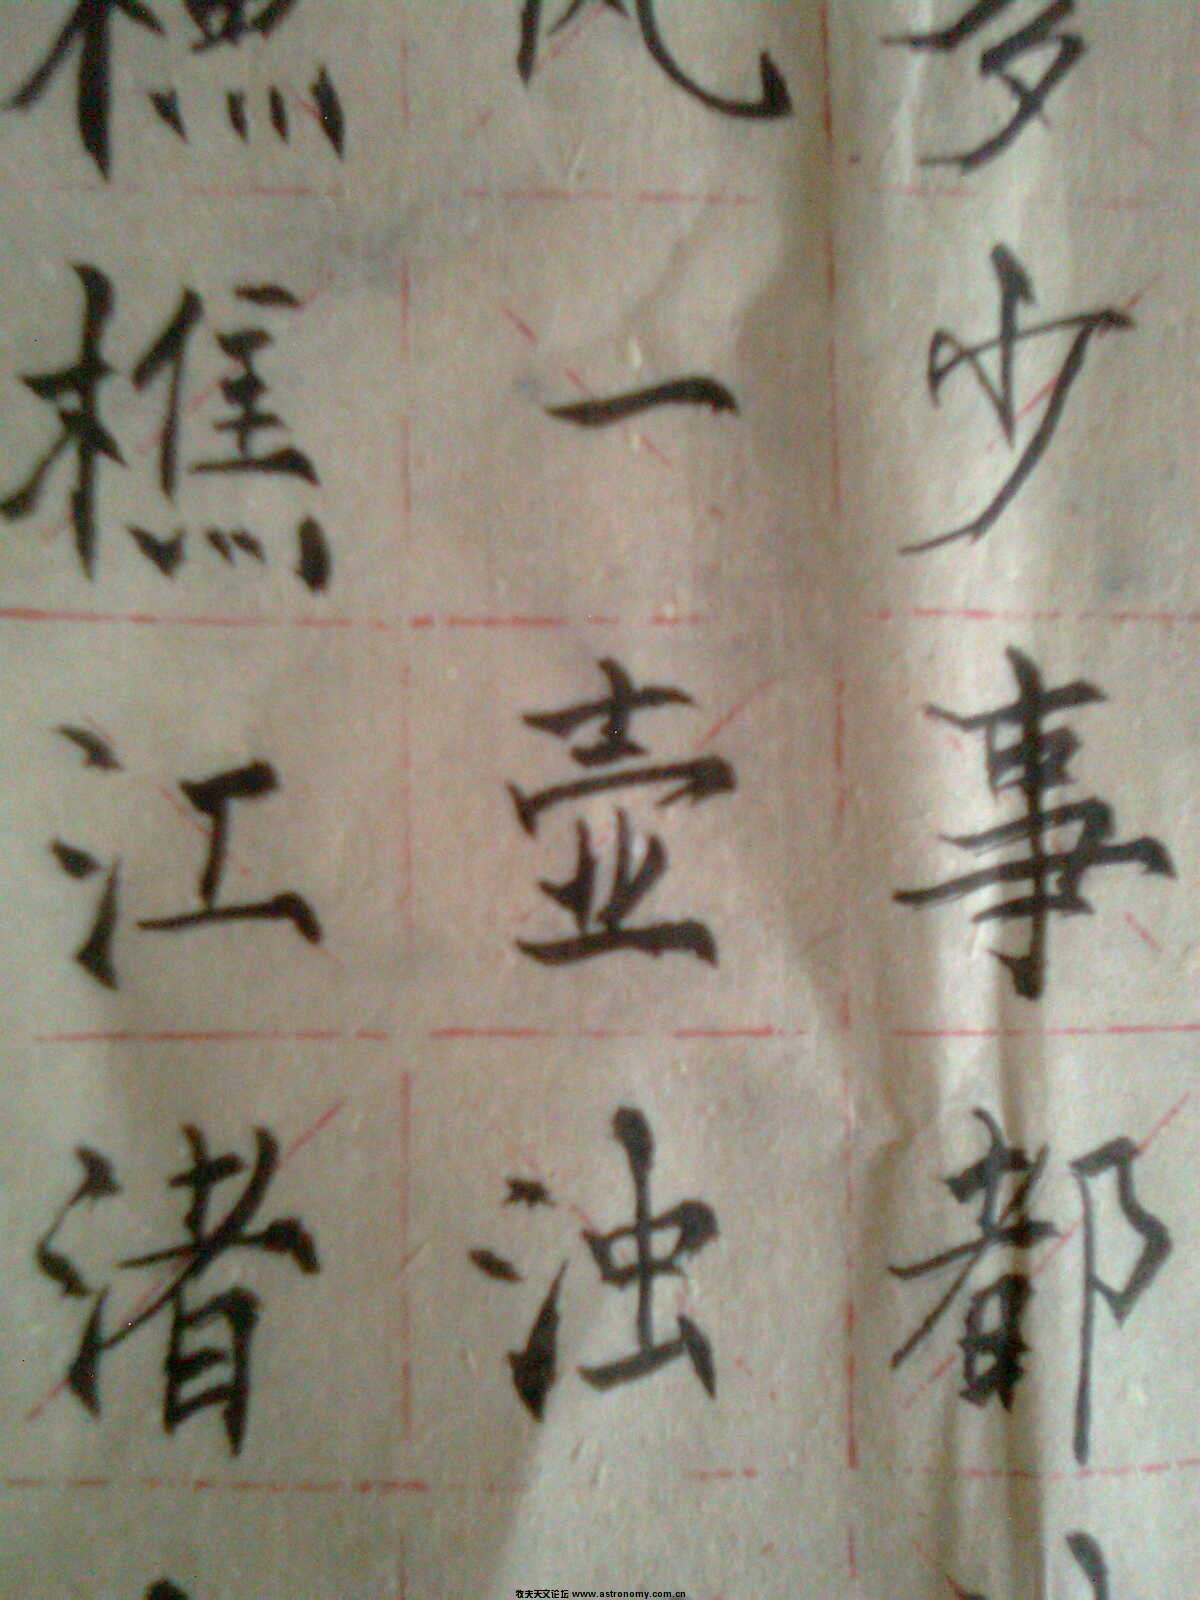 樵樵江渚
风一壶浊
多少事都
牧夫天文论坛 www.astronomy.com.cn